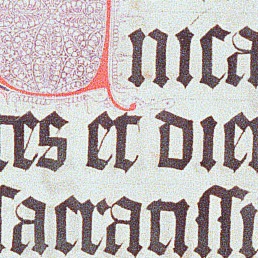 Unica
tes et die
sacratissi